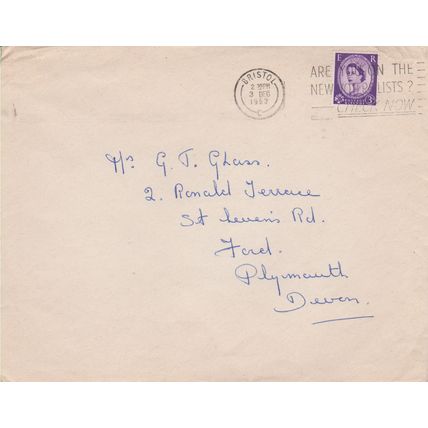 BRISTOL
2 30PM
3 DEC
1957
C
ARE ON THE
NEW LISTS?
CHECK NOW
E R
3D
G. T. Glass.
2. Ronald Terrace
St Leven's Rd.
Ford.
Plymouth
Devon.